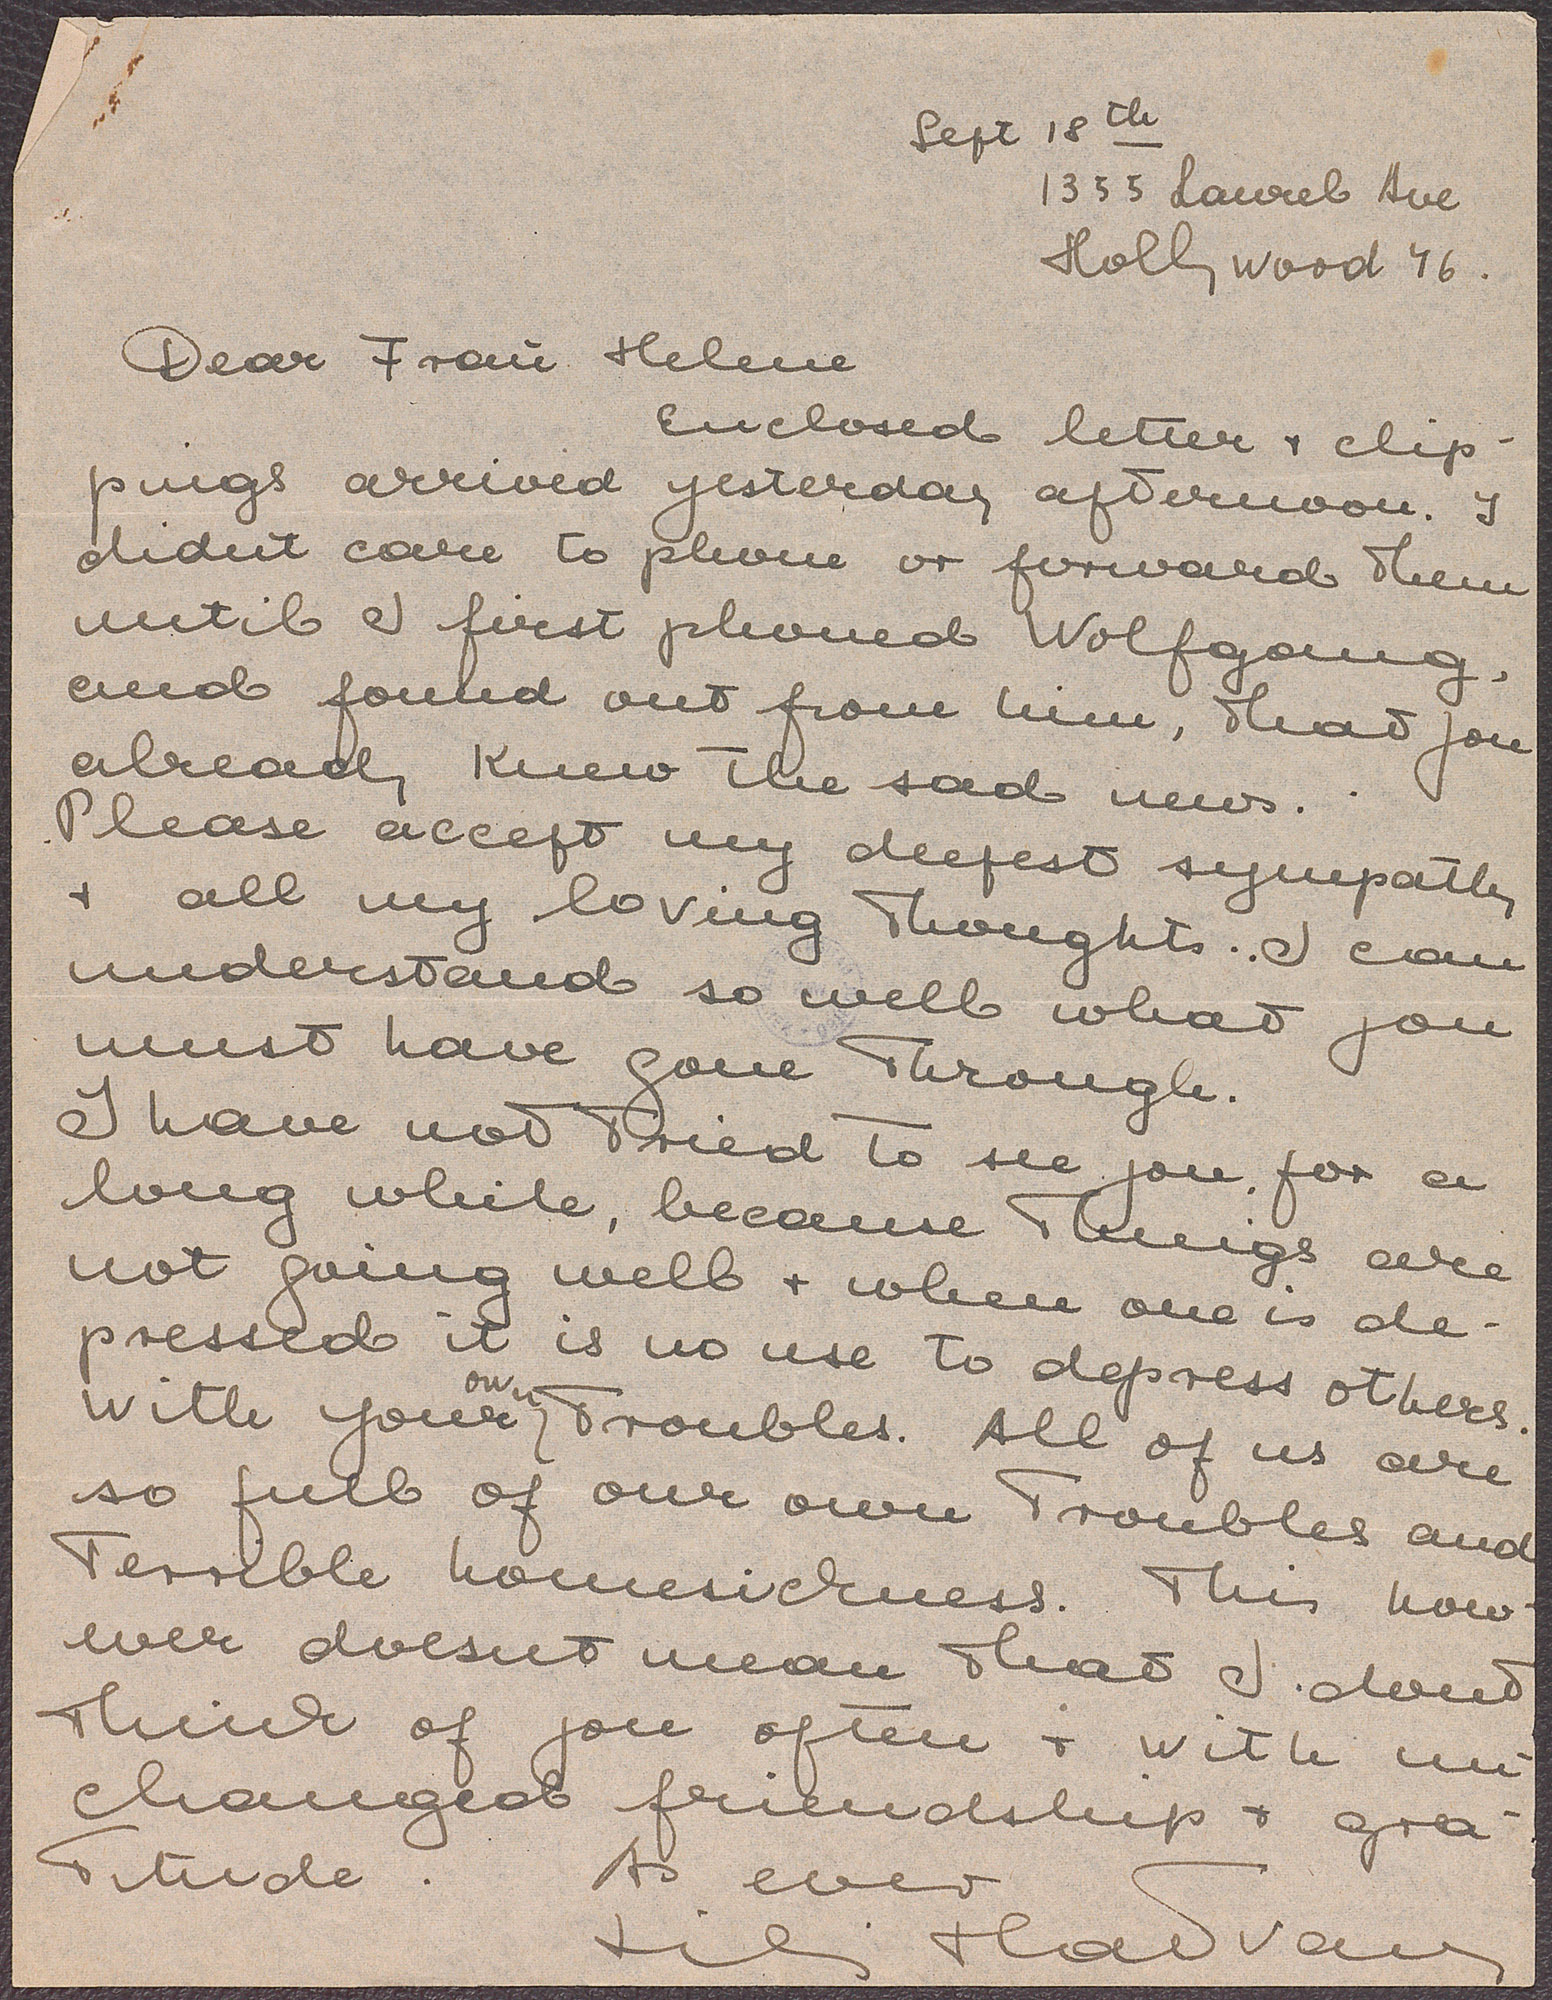 Sept 18th
1355 Laurel Ave
Hollywood 46.
Dear Frau Helene
Enclosed letter + clip-
pings arrived yesterday afternoon. I
didnt care to phone or forward them
until I first phoned Wolfgang,
and found out from him, that you
already knew the sad news.
Please accept my deepest sympathy
+ all my loving thoughts. I can
understand so well what you
must have gone through.
I have not tried to see you for a
long while, because things are
not going well + when one is de-
pressed it is no use to depress others.
with your own troubles. All of us are
so full of our own troubles and
terrible homesickness. This how-
ever doesnt mean that I dont
think of you often + with un-
changed friendship + gra-
titude. As ever
Lily Hatvany